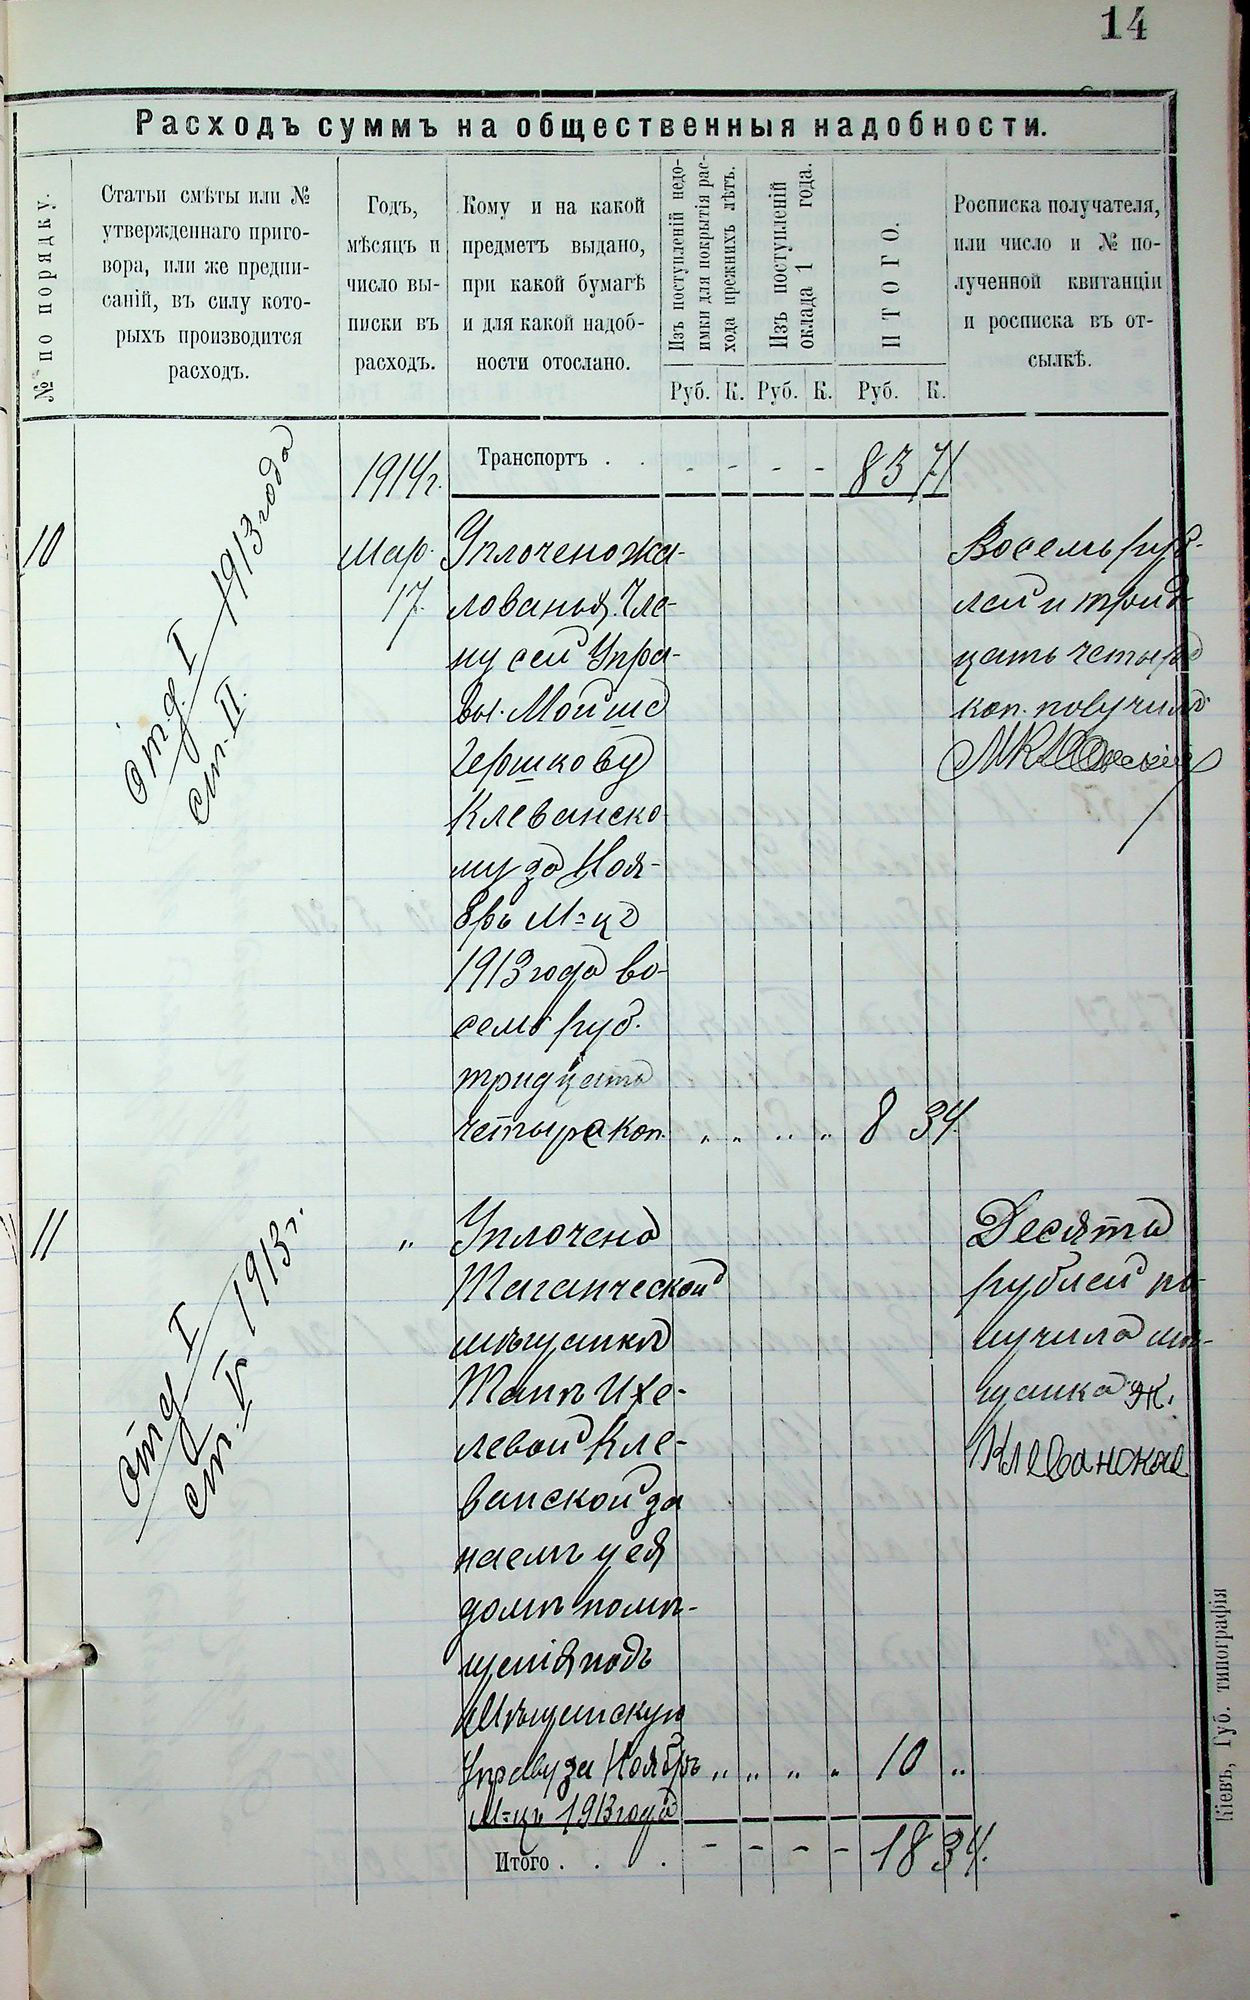 14
Расходъ суммъ на общественныя надобности.
№ по порядку.
Статьи смѣты или №
утвержденнаго приго-
вора, или же предпи-
саній, въ силу кото-
рыхъ производится
расходъ.
Годъ,
мѣсяцъ и
число вы-
писки въ
расходъ.
Кому и на какой
предметъ выдано,
при какой бумагѣ
и для какой надоб-
ности отослано.
Изъ поступленій недо-
имки для покрытія рас-
хода прежнихъ лѣтъ.
Изъ поступленій
оклада 1 года.
ИТОГО.
Росписка получателя,
или число и № по-
лученной квитанціи
и росписка въ от-
сылкѣ.
Руб. К. Руб. К. Руб. К.
1914г.
Транспортъ . . - - - - 83 71
10
отд. I 1913 года
ст. II.
Мар.
17.
Уплочено жа-
лованья Чле-
ну сей Упра-
вы Мойше
Гершкову
Клеванско-
му за Ноя-
брь М-цъ
1913 года во-
семь руб.
тридцать
четыре коп. „ „ „ „ 8 34.
Восемь руб-
лей и трид-
цать четыре
коп. получилъ
11
отд I 1913г.
ст. V
„
Уплочено
Таганческой
мѣщанкѣ
Клe-
ванской за
наемъ у ея
домѣ помѣ-
щенія подъ
Мѣщанскую
Управу за Ноябрь „ „ „ „ 10 „
М-цъ 1913 года
Десять
рублей по-
лучила мѣ-
щанка Ж.
Клеванская
Итого . . . . - - - - 18 34.
Кіевъ, Губ. типографія